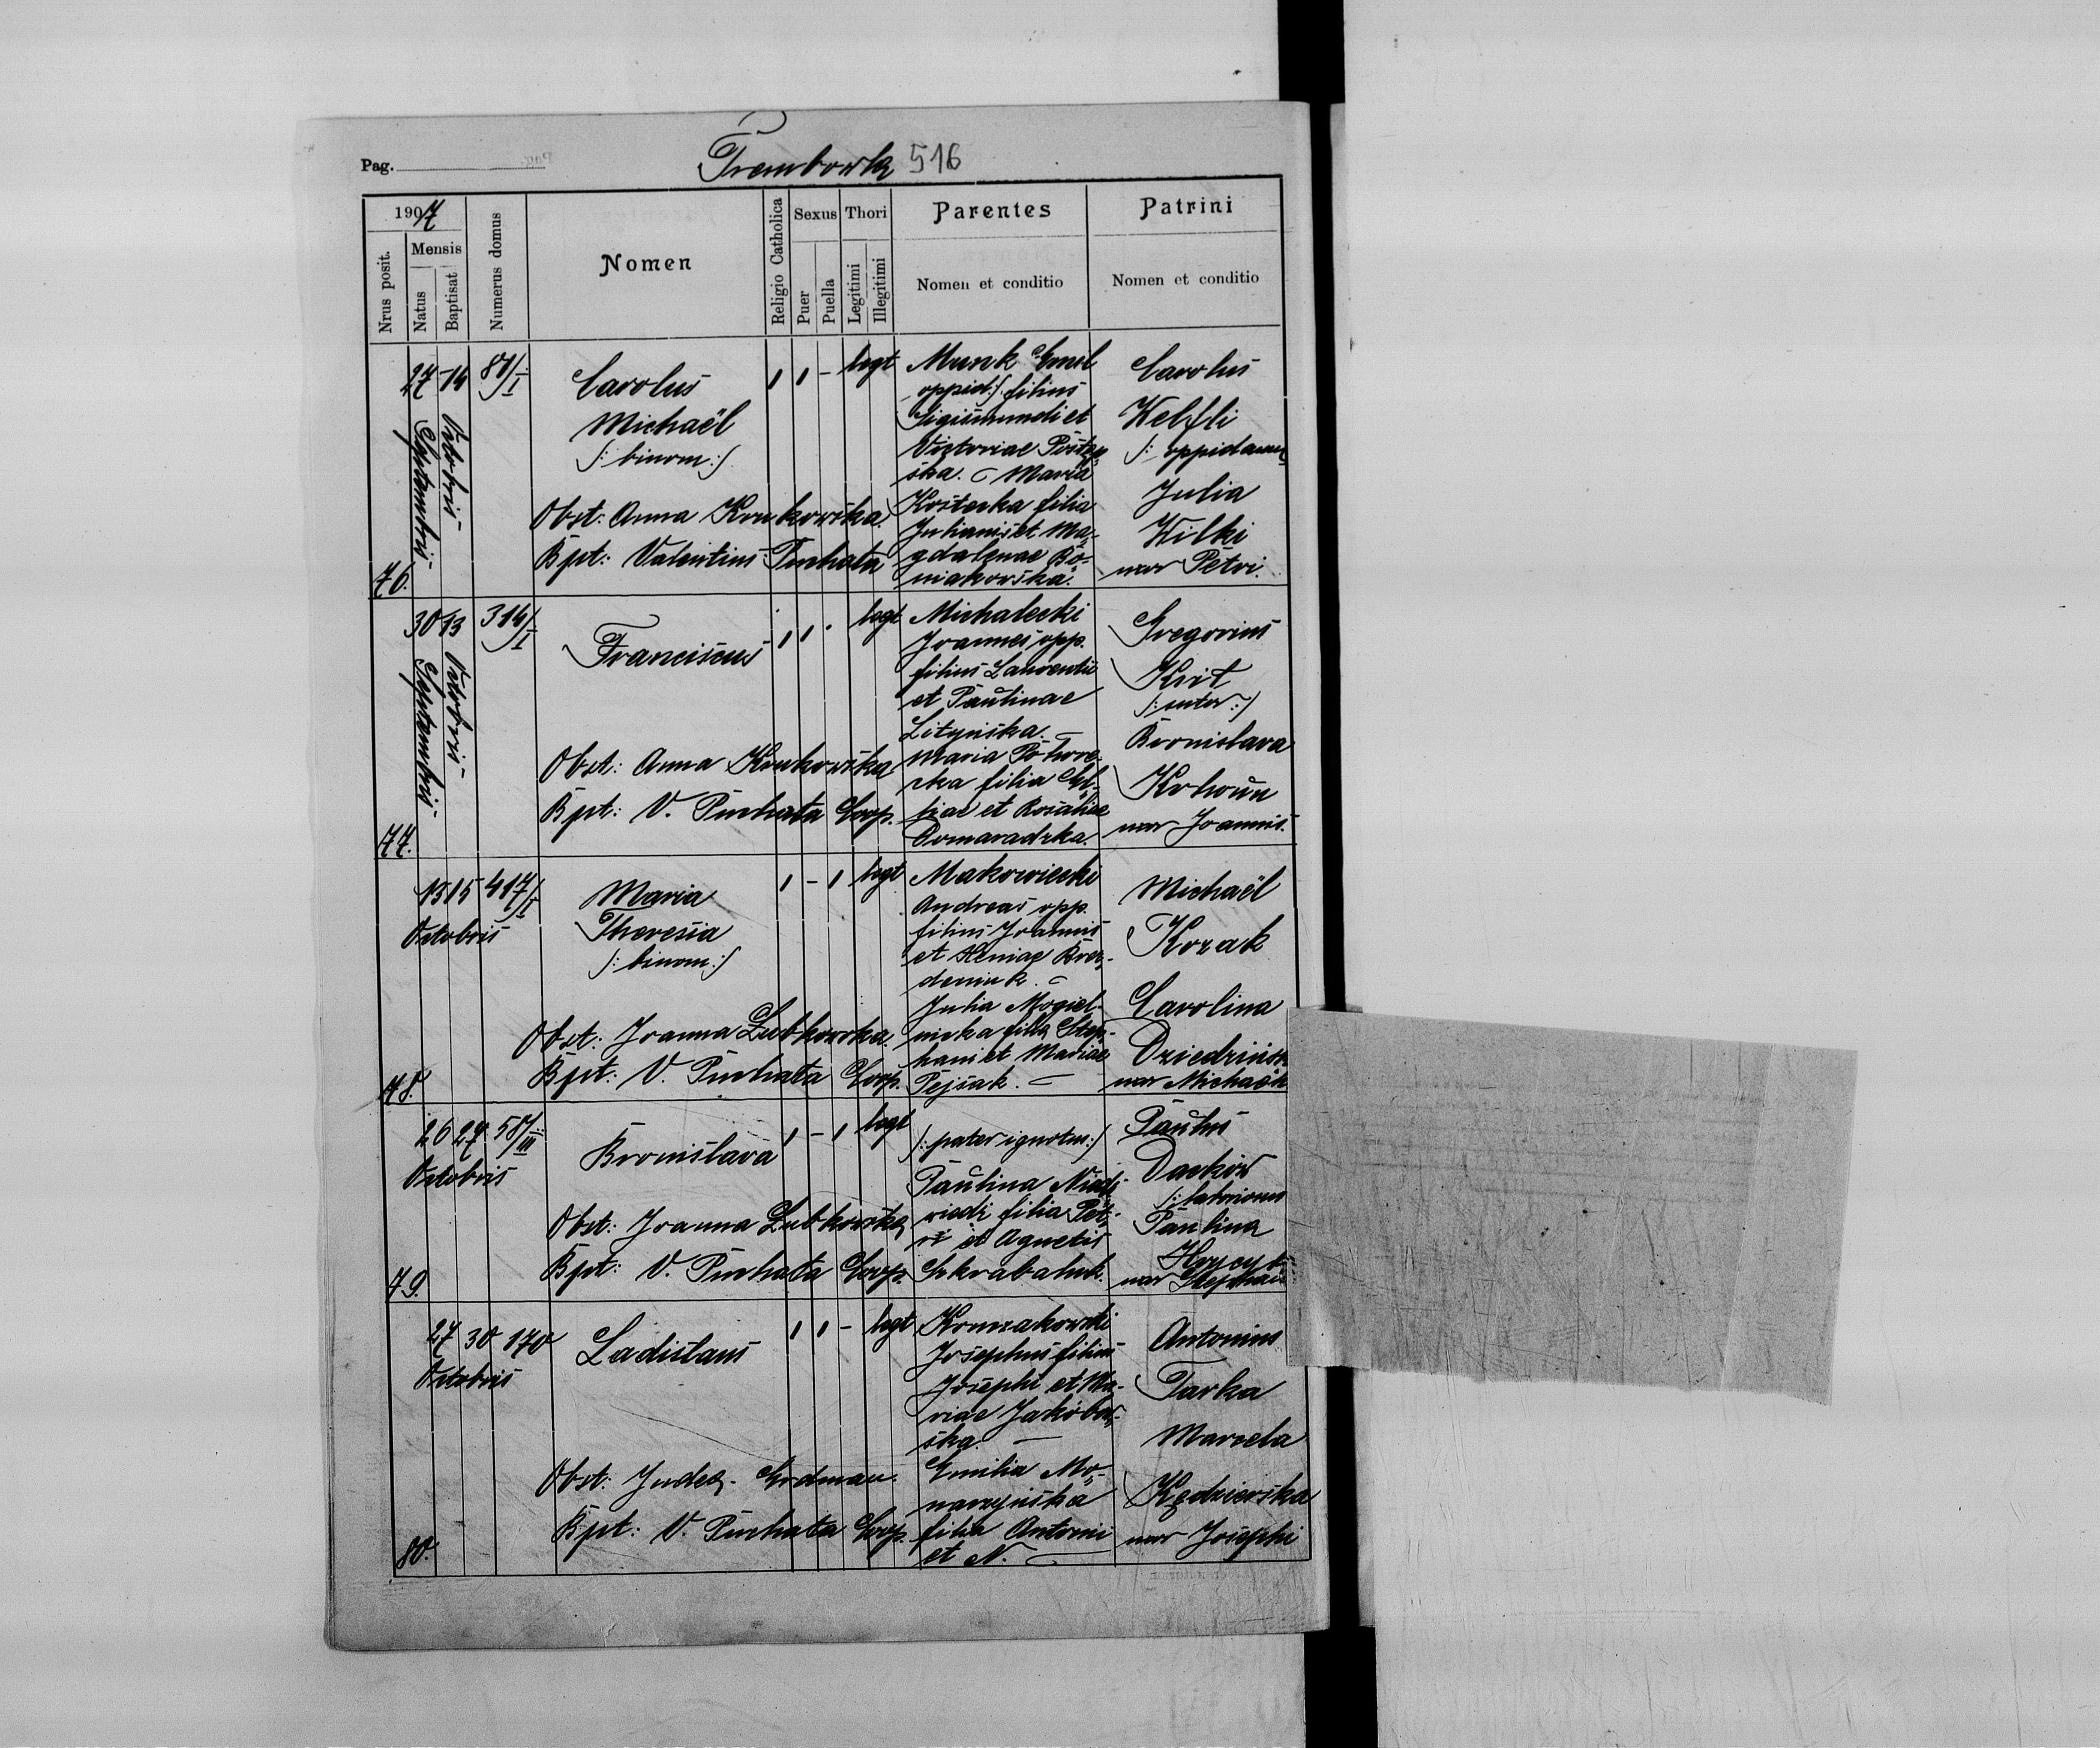 Pag.
Trembowla 516
1907
Nrus posit.
Mensis
Natus
Baptisat
Numerus domus
Nomen
Religio Catholica
Sexus
Puer
Puella
Thori
Legitimi
Illegitimi
Parentes
Nomen et conditio
Patrini
Nomen et conditio
76.
27 14
Septembris
Octobris
87/I
Carolus
Michaël
/: binom :/
Obst: Anna Krukowska
Bpt: Valentius Puchała
legt
Munk
oppid:/ filius
Sigismundi et
Victoriae
ska. Maria
Kostecka filia
Julianis et Ma-
gdalenae Bo-
niakowska.
Carolus
/: oppidanus
Julia
Wilki
uxor Petri.
77.
30 13
Septembris
Octobris
314/I
Franciscus
Obst: Anna Krukowska
Bpt: V. Puchała Coop.
legt
Michalecki
Joannes opp.
filius Laurentii
et Paulinae
Lityńska.
Maria Pohore-
cka filia
et Rosaliae
Domaradzka.
Gregorius
Krit
/: sutor :/
Bronislava
uxor Joannis.
78.
15 15
Octobris
417/I
Maria
Theresia
/: binom :/
Obst: Joanna Lubkowska.
Bpt: V. Puchała Coop.
legt
Makowiecki
Andreas opp.
filius Joannis
et
Julia Mogiel-
nicka filia Step-
hani et Mariae
Pejsak.
Michaël
Kozak
Carolina
uxor Michaëlis
79.
26 27
Octobris
58/III
Bronislava
Obst: Joanna Lubkowska
Bpt: V. Puchała Coop.
legt
/: pater ignotus :/
Paulina Niedź-
wiedź filia Pet-
ri et Agnetis
Szkrabaluk.
Paulus
Dacków
Paulina
uxor
80.
27 30 170
Octobris
Ladislaus
Obst: Erdman.
Bpt: V. Puchała Coop.
legt
Josephus filius
Josephi et Ma-
riae
ska.
Emilia Mo-
narzyńska
filia Antonii
et N.
Antonius
Tarka
Marcela
Kędzierska
uxor Josephi